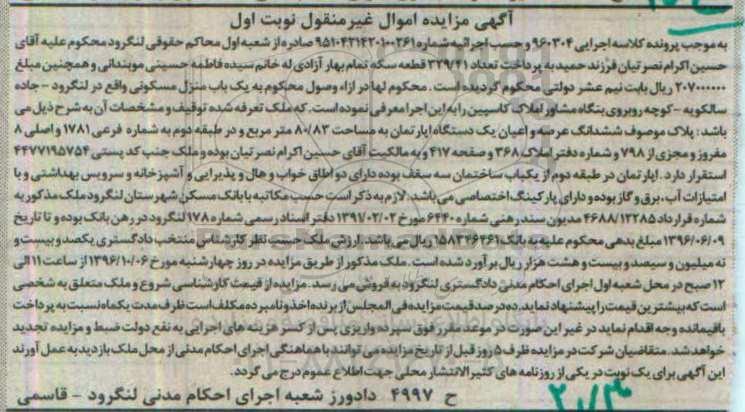 آگهی مزایده اموال غیرمنقول نوبت اول
به موجب پرونده کلاسه اجرایی ۹۶۰۳۰۴ و حسب اجرائیه شماره ۹۵۱۰۴۲۱۴۲۰۱۰۰۲۶۱ صادره از شعبه اول محاکم حقوقی لنگرود محکوم علیه آقای
حسین اکرام نصرتیان فرزند حمید به پرداخت تعداد ۳۲۹/۴۱ قطعه سکه تمام بهار آزادی له خانم سیده فاطمه حسینی موبندانی و همچنین مبلغ
۲۰۷۰۰۰۰۰۰ ریال بابت نیم عشر دولتی محکوم گردیده است. محکوم لها در ازاء وصول محکوم به یک باب منزل مسکونی واقع در لنگرود - جاده
سالکویه - کوچه روبروی بنگاه مشاور املاک کاسپین را به این اجرا معرفی نموده است. که ملک تعرفه شده توقیف و مشخصات آن به شرح ذیل می
باشد: پلاک موصوف ششدانگ عرصه و اعیان یک دستگاه آپارتمان به مساحت ۸۰/۸۳ متر مربع و در طبقه دوم به شماره فرعی ۱۷۸۱ و اصلی ۸
مفروز و مجزی از ۷۹۸ و شماره دفتر املاک ۳۶۸ و صفحه ۴۱۷ و به مالکیت آقای حسین اکرام نصرتیان بوده و ملک جنب کد پستی ۴۴۷۷۱۹۵۷۵۴
استقرار دارد. آپارتمان در طبقه دوم از یکباب ساختمان سه سقف بوده دارای دو اطاق خواب و هال و پذیرایی و آشپزخانه و سرویس بهداشتی و با
امتیازات آب، برق و گاز بوده و دارای پارکینگ اختصاصی می باشد. لازم به ذکر است حسب مکاتبه با بانک مسکن شهرستان لنگرود ملک مذکور به
شماره قرارداد ۴۶۸۸/۱۲۲۸۵ مدیون سند رهنی شماره ۶۴۴۰ مورخ ۱۳۹۱/۰۲/۰۲ دفتر اسناد رسمی شماره ۱۷۸ لنگرود در رهن بانک بوده و تا تاریخ
۱۳۹۶/۰۶/۰۹ مبلغ بدهی محکوم علیه به بانک ۱۵۸۳۲۶۲۶۱ ریال می باشد. ارزش ملک حسب نظر کارشناس منتخب دادگستری یکصد و بیست و
نه میلیون و سیصد و بیست و هشت هزار ریال برآورد شده است. ملک مذکور از طریق مزایده در روز چهارشنبه مورخ ۱۳۹۶/۱۰/۰۶ از ساعت ۱۱ الی
۱۲ صبح در محل شعبه اول اجرای احکام مدنی دادگستری لنگرود به فروش می رسد. مزایده از قیمت کارشناسی شروع و ملک متعلق به شخصی
است که بیشترین قیمت را پیشنهاد نماید. ده درصد قیمت مزایده فی المجلس از برنده اخذ و نامبرده مکلف است ظرف مدت یکماه نسبت به پرداخت
باقیمانده وجه اقدام نماید در غیر این صورت در موعد مقرر فوق سپرده واریزی پس از کسر هزینه های اجرایی به نفع دولت ضبط و مزایده تجدید
خواهد شد. متقاضیان شرکت در مزایده ظرف ۵ روز قبل از تاریخ مزایده می توانند با هماهنگی اجرای احکام مدنی از محل ملک بازدید به عمل آورند
این آگهی برای یک نوبت در یکی از روزنامه های کثیرالانتشار محلی جهت اطلاع عموم درج می گردد.
ح ۴۹۹۷ دادورز شعبه اجرای احکام مدنی لنگرود - قاسمی